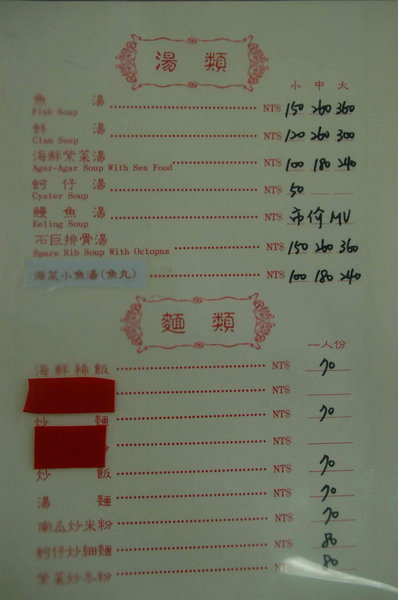 湯 類
小 中 大
魚 湯 NT$ 150 260 360
Fish Soup
蚌 湯 NT$ 120 260 300
Clam Soup
海鮮紫菜湯 NT$ 100 180 240
Agar-Agar Soup With Sea Food
蚵仔湯 NT$ 50
Cyater Soup
鰻魚湯 NT$ 市价 MV
Eeling Soup
石巨排骨湯 NT$ 150 260 360
Spare Rib Soup With Octopus
海菜小魚湯(魚丸) NT$ 100 180 240
麵 類
一人份
海鮮稀飯 NT$ 70
NT$
炒 麵 NT$ 70
NT$
炒 飯 NT$ 70
湯 麵 NT$ 70
南瓜炒米粉 NT$ 70
蚵仔炒細麵 NT$ 80
紫菜炒冬粉 NT$ 80